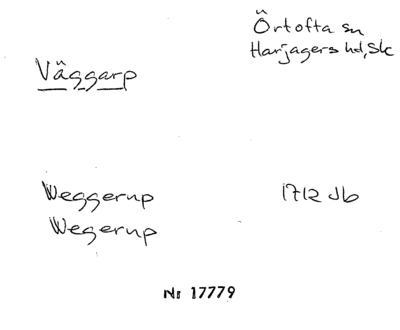 Örtofta sn
Harjagers hd, Sk
Väggarp
Weggerup 1712 Jb
Wegerup
Nr 17779